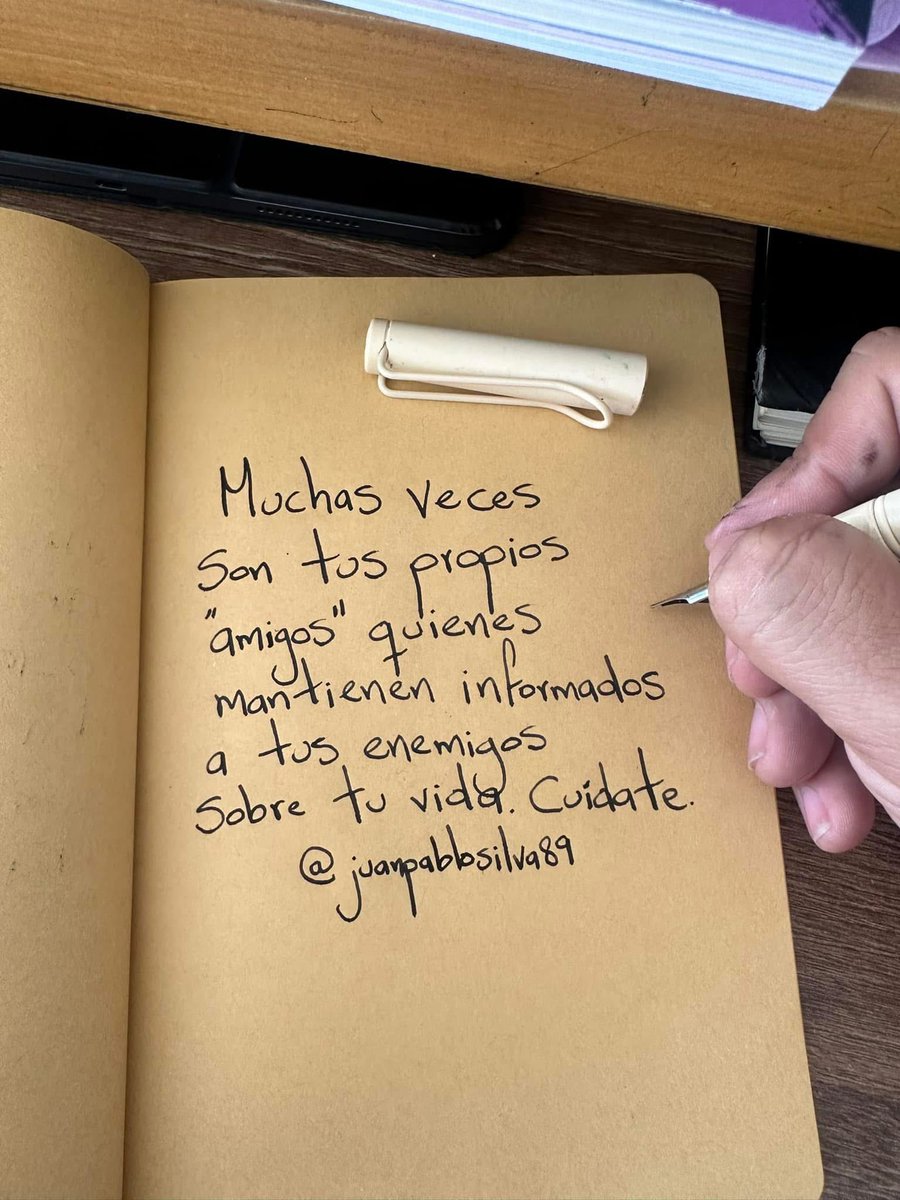 Muchas veces
son tus propios
"amigos" quienes
mantienen informados
a tus enemigos
sobre tu vida. Cuídate.
@juanpablosilva89